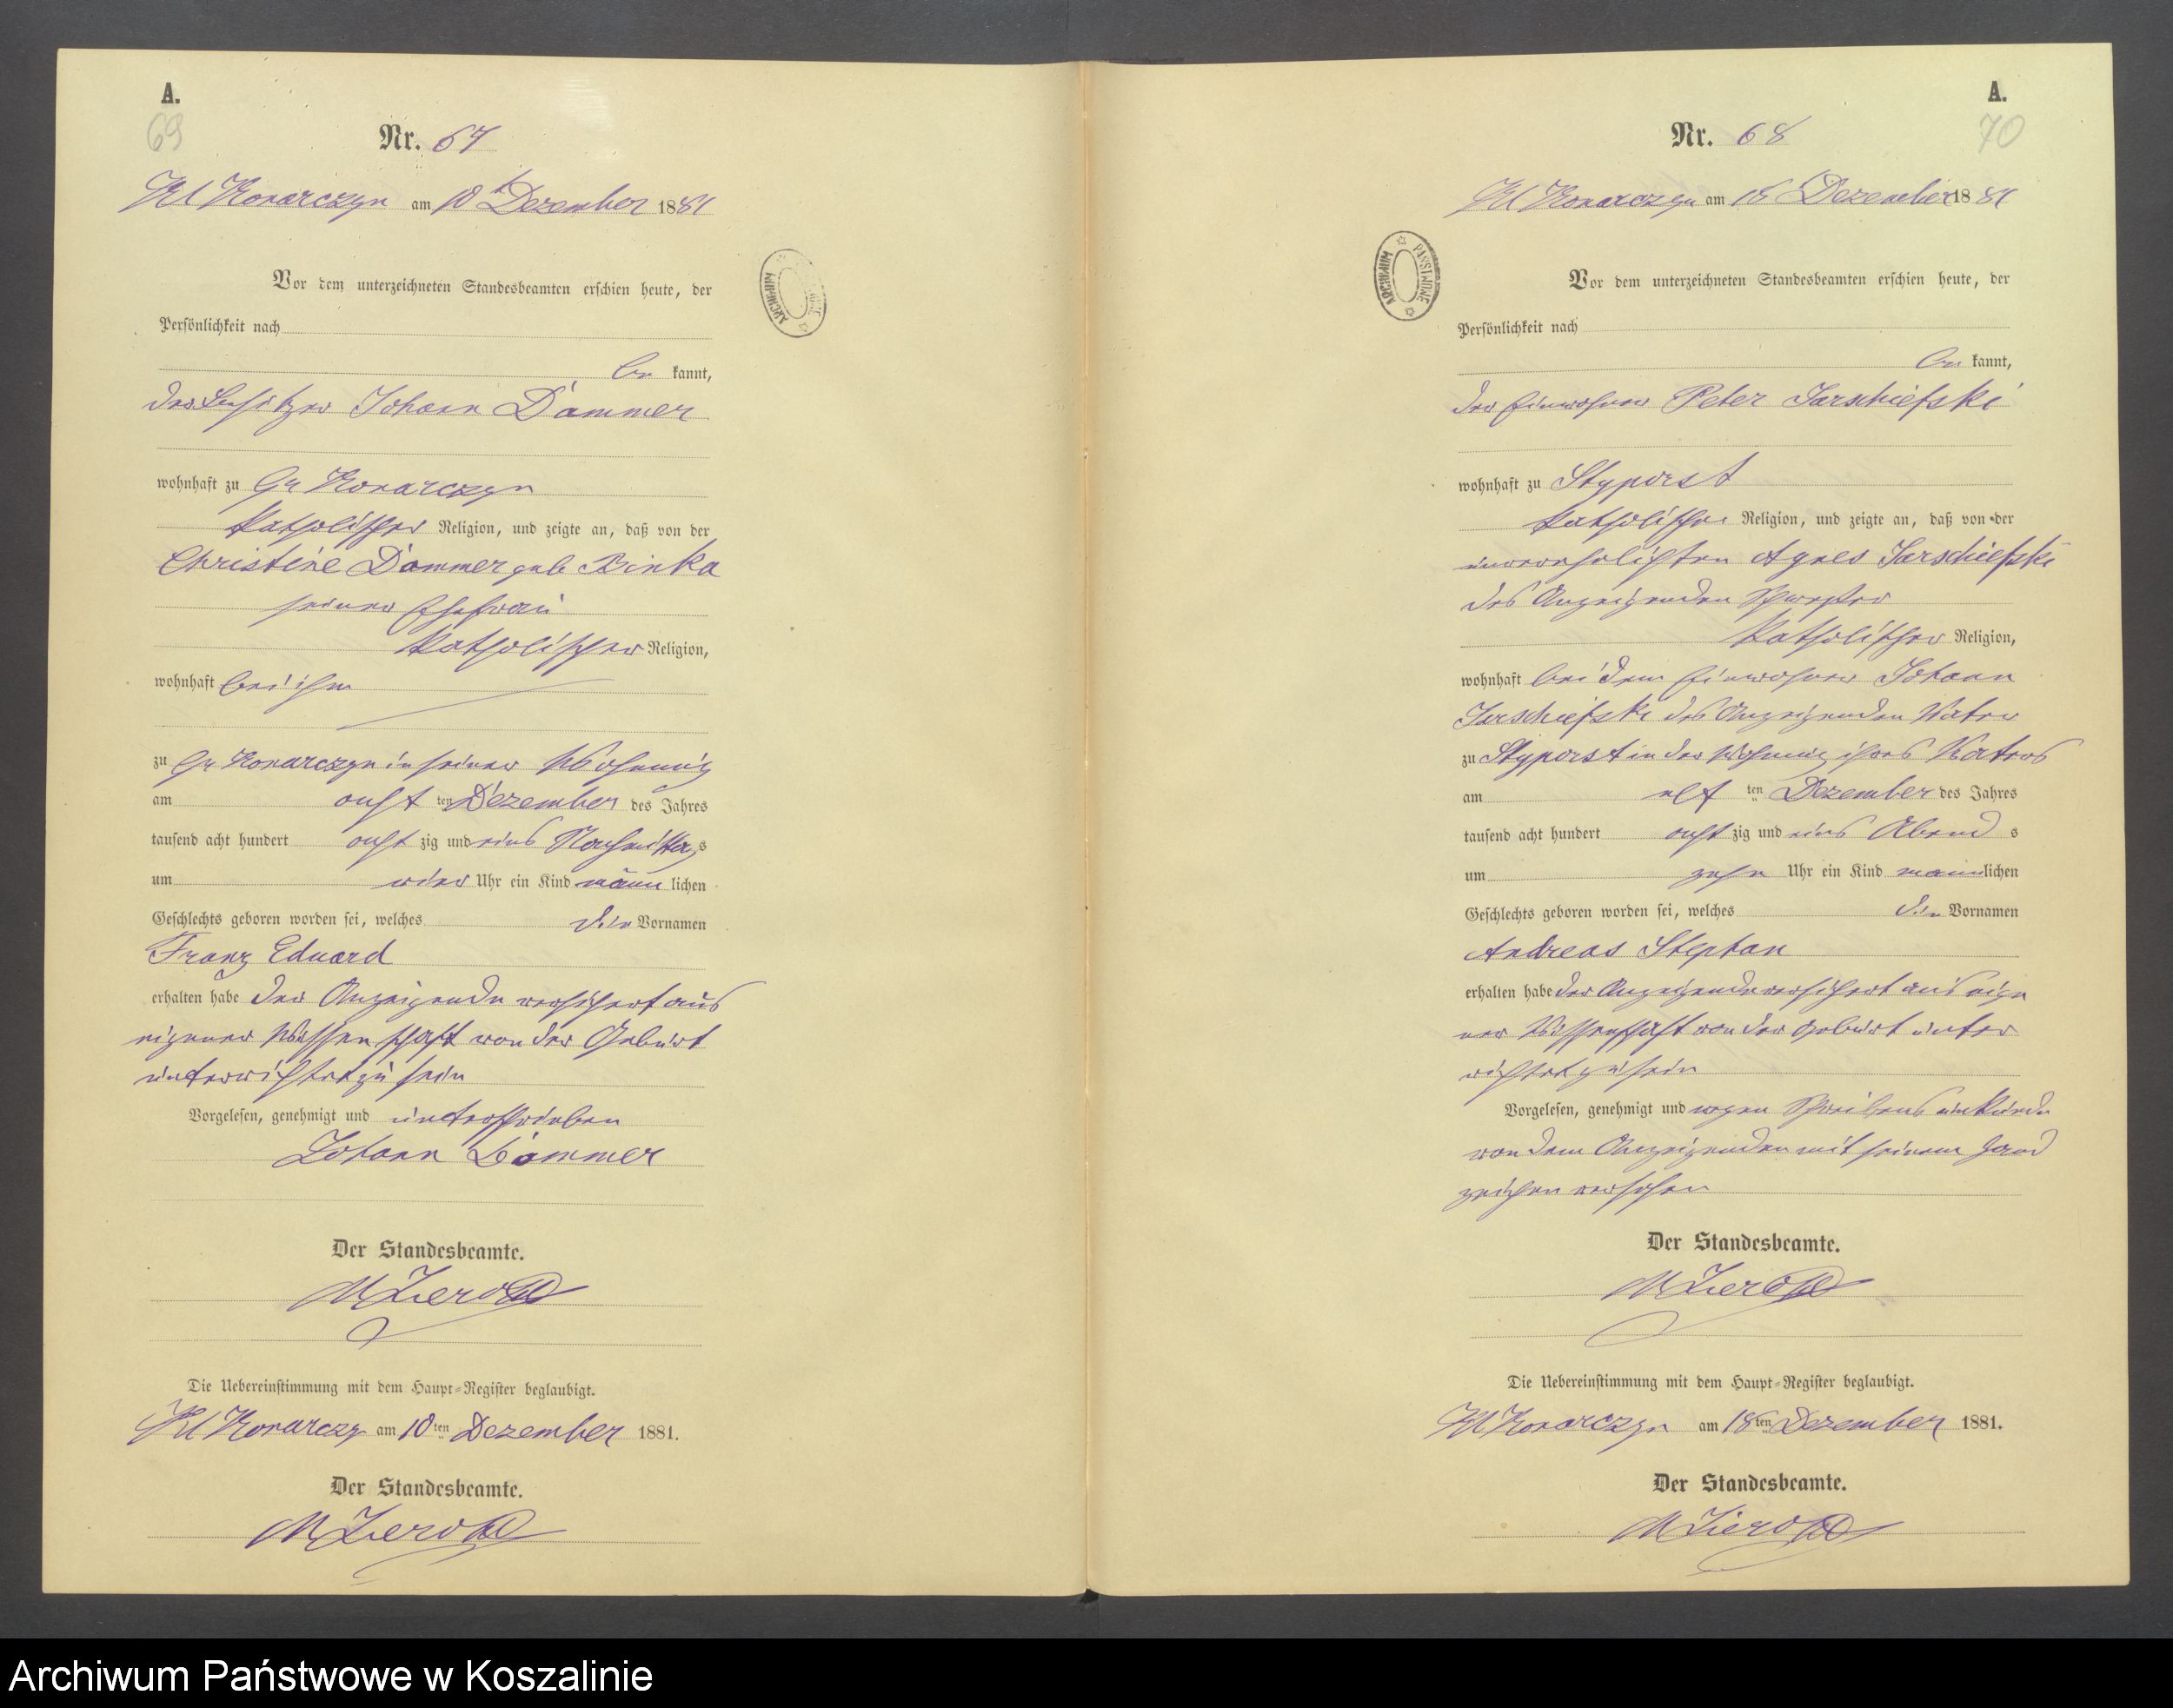 A.
69
Nr. 67
Kl Konarczyn am 10t Dezember 1881
Vor dem unterzeichneten Standesbeamten erschien heute, der
Persönlichkeit nach
be kannt,
der Besitzer Johann Dammer
wohnhaft zu Gr Konarczyn
katholischer Religion, und zeigte an, daß von der
Christine Dammer geb Binka
seiner Ehefrau
katholischer Religion,
wohnhaft bei ihm
zu Gr Konarczyn in seiner Wohnung
am acht ten Dezember des Jahres
tausend acht hundert acht zig und eins Nachmittag s
um vier Uhr ein Kind männ lichen
Geschlechts geboren worden sei, welches die Vornamen
Franz Eduard
erhalten habe Der Anzeigende versichert aus
eigener Wissenschaft von der Geburt
unterrichtet zu sein
Vorgelesen, genehmigt und unterschrieben
Johann Dammer
Der Standesbeamte.
Die Uebereinstimmung mit dem Haupt-Register beglaubigt.
Kl Konarczyn am 10ten Dezember 1881.
Der Standesbeamte.
A.
70
Nr. 68
Kl Konarczyn am 18 Dezember 1881
ARCHIWUM PAŃSTWOWE
Vor dem unterzeichneten Standesbeamten erschien heute, der
Persönlichkeit nach
be kannt,
der Einwohner Peter Jarschiefski
wohnhaft zu Styporst
katholischer Religion, und zeigte an, daß von der
unverehelichten Agnes Jarschiefski
des Anzeigenden Schwester
katholischer Religion,
wohnhaft bei dem Einwohner Johann
Jarschiefski des Anzeigenden Vater
zu Styporst in der Wohnung ihres Vaters
am elf ten Dezember des Jahres
tausend acht hundert acht zig und eins Abend s
um zehn Uhr ein Kind männlichen
Geschlechts geboren worden sei, welches die Vornamen
Andreas Stephan
erhalten habe Der Anzeigende versichert aus eige
ner Wissenschaft von der Geburt unter
richtet zu sein
Vorgelesen, genehmigt und wegen Schreibens unkunde
von dem Anzeigenden mit seinem Hand
zeichen versehen
Der Standesbeamte.
Die Uebereinstimmung mit dem Haupt-Register beglaubigt.
Kl Konarczyn am 18ten Dezember 1881.
Der Standesbeamte.
Archiwum Państwowe w Koszalinie